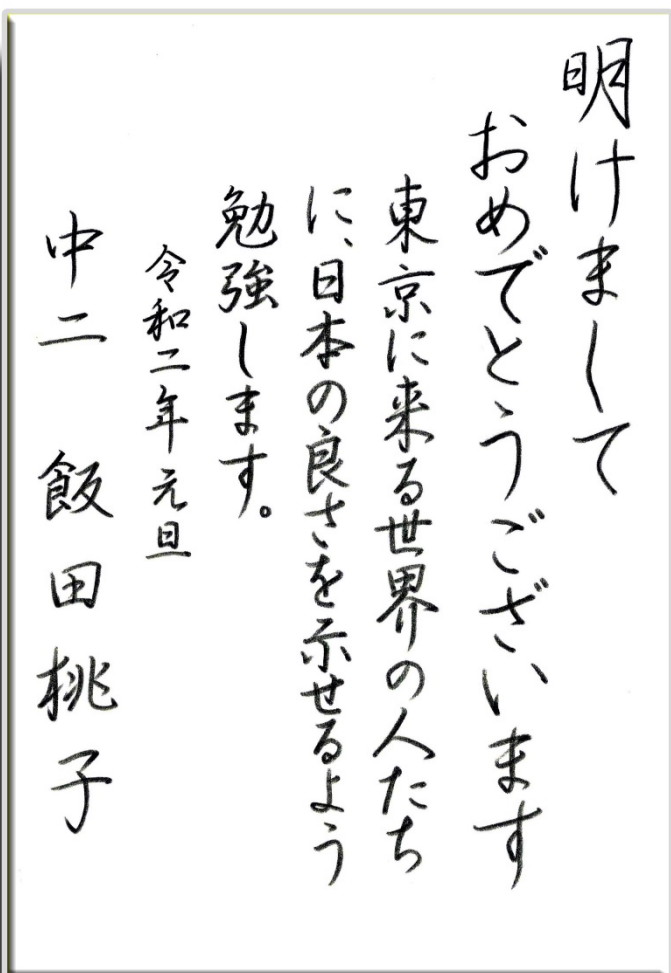 明けまして
おめでとうございます
東京に来る世界の人たち
に、日本の良さを示せるよう
勉強します。
令和二年元旦
中二 飯田桃子